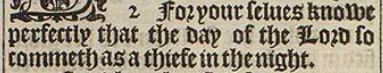 2 For your selues knowe
perfectly that the day of the Lord so
commeth as a thiefe in the night.